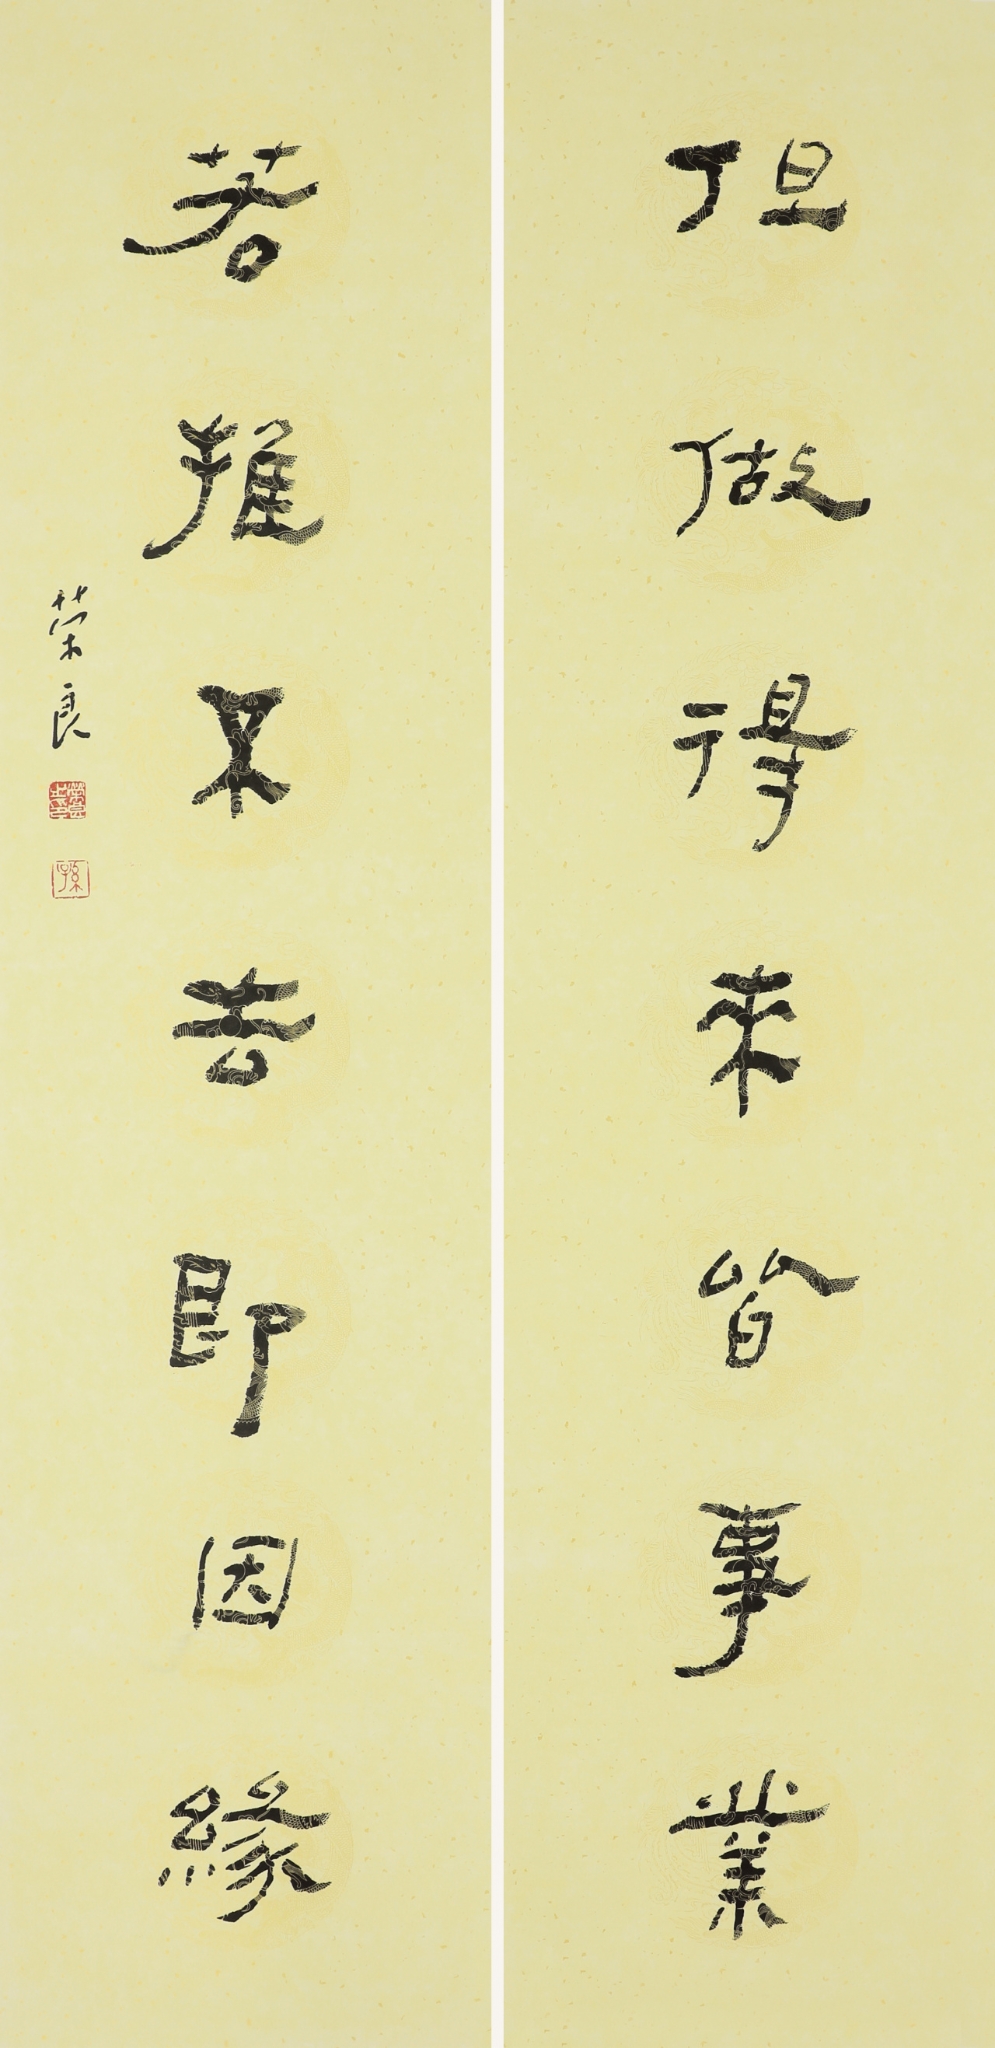 但做得来皆事業
若推不去即因緣
荣良
孫